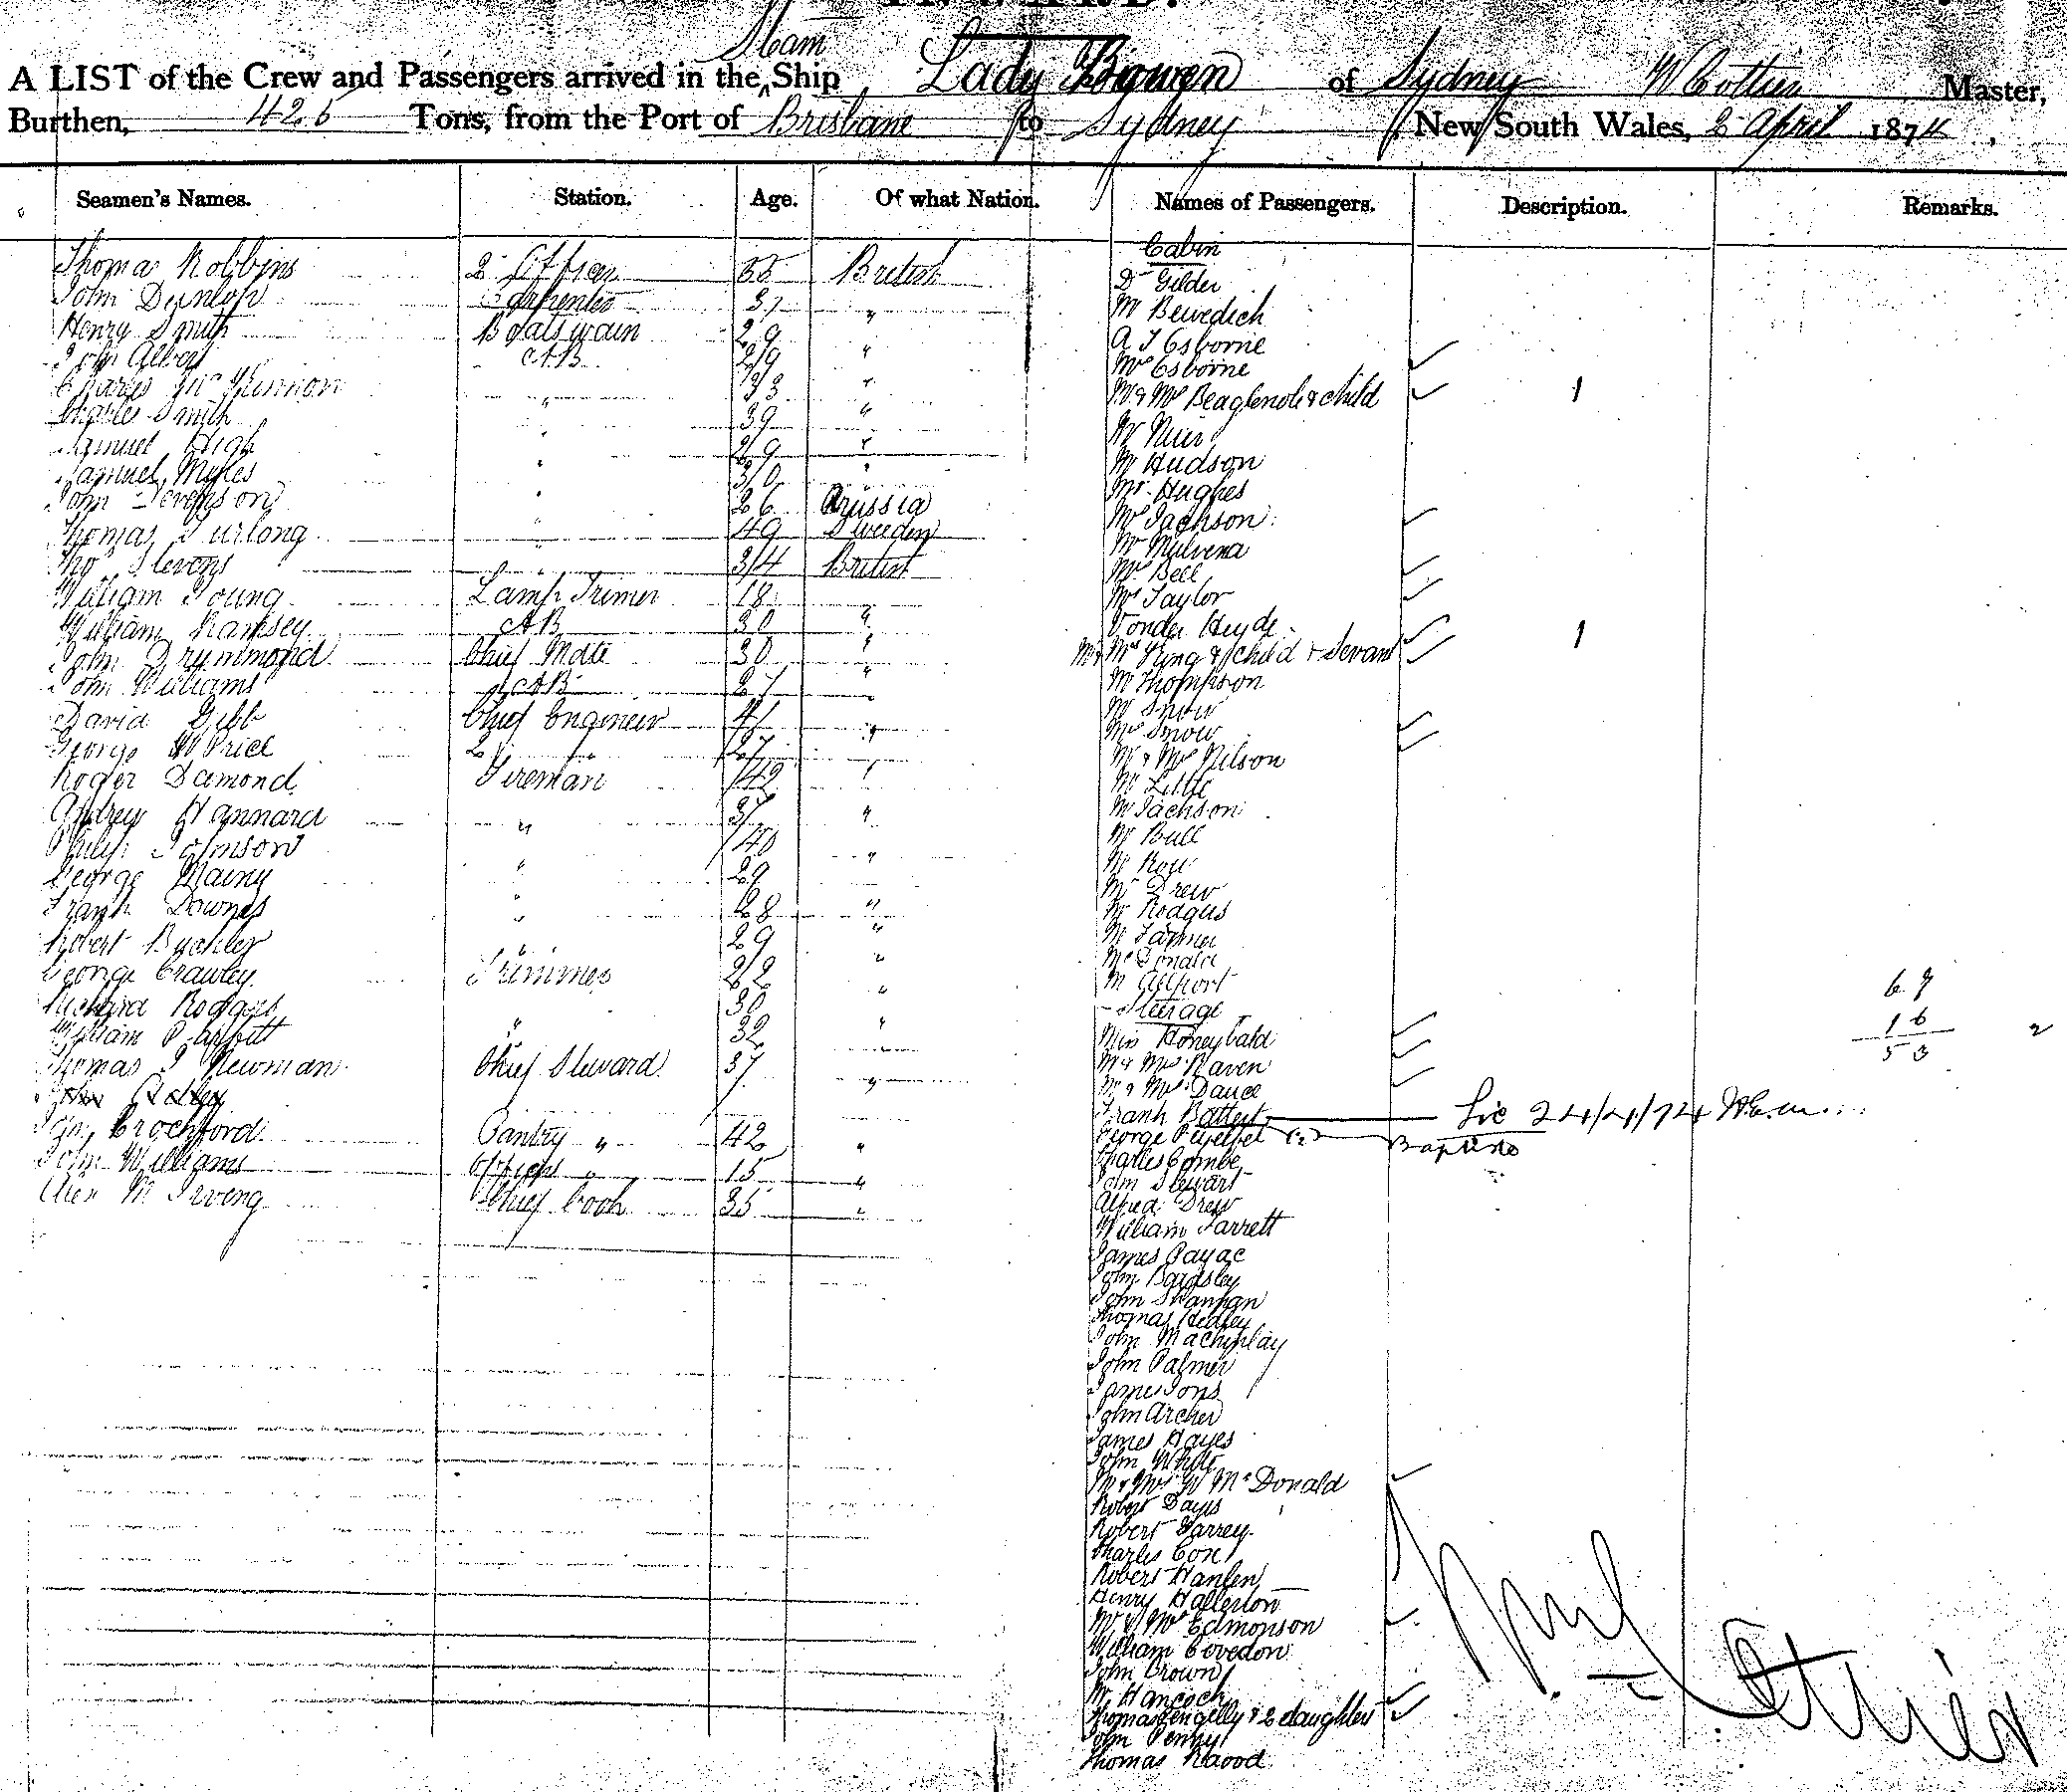 Steam
A LIST of the Crew and Passengers arrived in the Ship Lady Bowen of Sydney W Cottier Master,
Burthen, 425 Tons, from the Port of Brisbane to Sydney New South Wales, 2 April 1874,
Seamen's Names. Station. Age. Of what Nation. Names of Passengers. Description. Remarks.
Thomas Robbins 2 Officer 55 British
John Dunlop Carpenter 37 "
Henry Smith Boatswain 29 "
John Albert AB 29 "
Charles 33 "
Charles Smith " 39 "
Samuel High " 29 "
Samuel Mykes " 30 "
John " 26 Prussia
Thomas Furlong " 49 Sweeden
Thos Stevens " 34 British
William Young Lamp Trimer 18 "
William Ramsey AB 30 "
John Drummond Chief Mate 30 "
John Williams AB 27 "
David Gibb Chief Engineer 41 "
George W Price 2 " 27 "
Roger Diamond Fireman 42 "
Andrew Hannard " 37 "
Philip Johnson " 40 "
George " 29 "
Frank Downes " 28 "
Robert " 29 "
George Crawley Trimmer 22 "
Richard Rodgers 30
William " 32 "
Thomas J Newman Chief Steward 37 "
Crochford Pantry " 42 "
John Williams " 15 "
Alex M Irveng Chief Cook 35 "
Cabin
Dr Gilder
Mr
A J Osborne
Mrs Osborne
Mr & Mrs Beaglehole & child 1
Mr
Mr Hudson
Mr Hughes
Mrs Jackson
Mr Mulvena
Mrs Bell
Mrs Taylor
Vonder Heyde
Mr & Mrs King & child & Servant 1
Mr Thompson
Mr Snow
Mrs Snow
Mr & Mrs Nilson
Mr Little
Mr Jackson
Mr Bull
Mr
Mr Drew
Mr Rodgers
Mr Farmer
McDonald
Mr Allport
Steerage
Miss Honeybald
Mr & Mrs Raven
Mr & Mrs Dance
Frank Battert Lic 24/4/74
George Baptiste
Charles Combe
John Stewart
Alfred Drew
William Jarrett
James
John Bardsley
John Shannan
Thomas Hedley
John Mackinlay
John Palmer
James Jons
John Archer
James Hayes
John White
Mr & Mrs W McDonald
Robert Days
Robert
Charles Cox
Robert Hanlen
Henry Hallerton
Mr & Mrs Edmonson
William Covedon
John Brown
Mr Hancock
Thomas Pengelly & 2 daughters
John Penny
Thomas
69
16
53 2
W Cottier